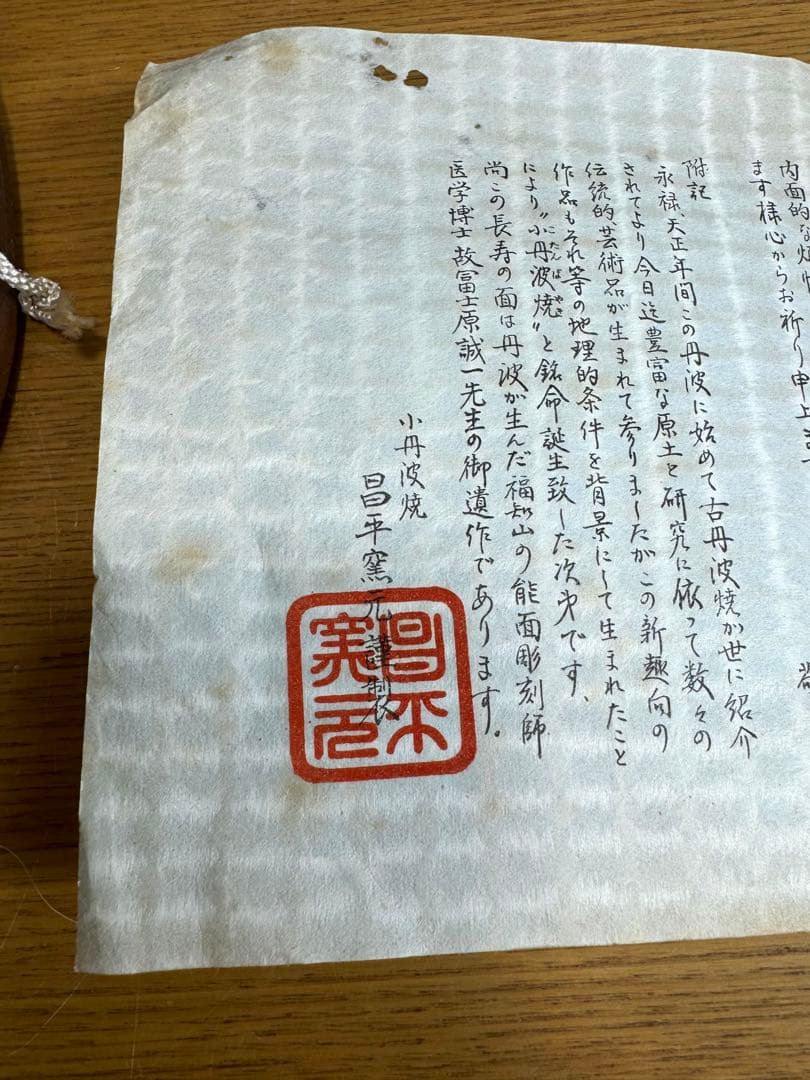 内面的な
ます様心からお祈り申上
附記
永禄、天正年間この丹波に始めて古丹波焼が世に紹介
されてより今日迄豊富な原土と研究に依って数々の
伝統的、芸術品が生まれて参りましたがこの新趣向の
作品もそれ等の地理的条件を背景にして生まれたこと
により〝小丹波焼〟と銘命誕生致した次第です、
にたんばやき
尚この長寿の面は丹波が生んだ福知山の能面彫刻師
医学博士故冨士原誠一先生の御遺作であります。
小丹波焼
昌平窯元謹製
昌平
窯元